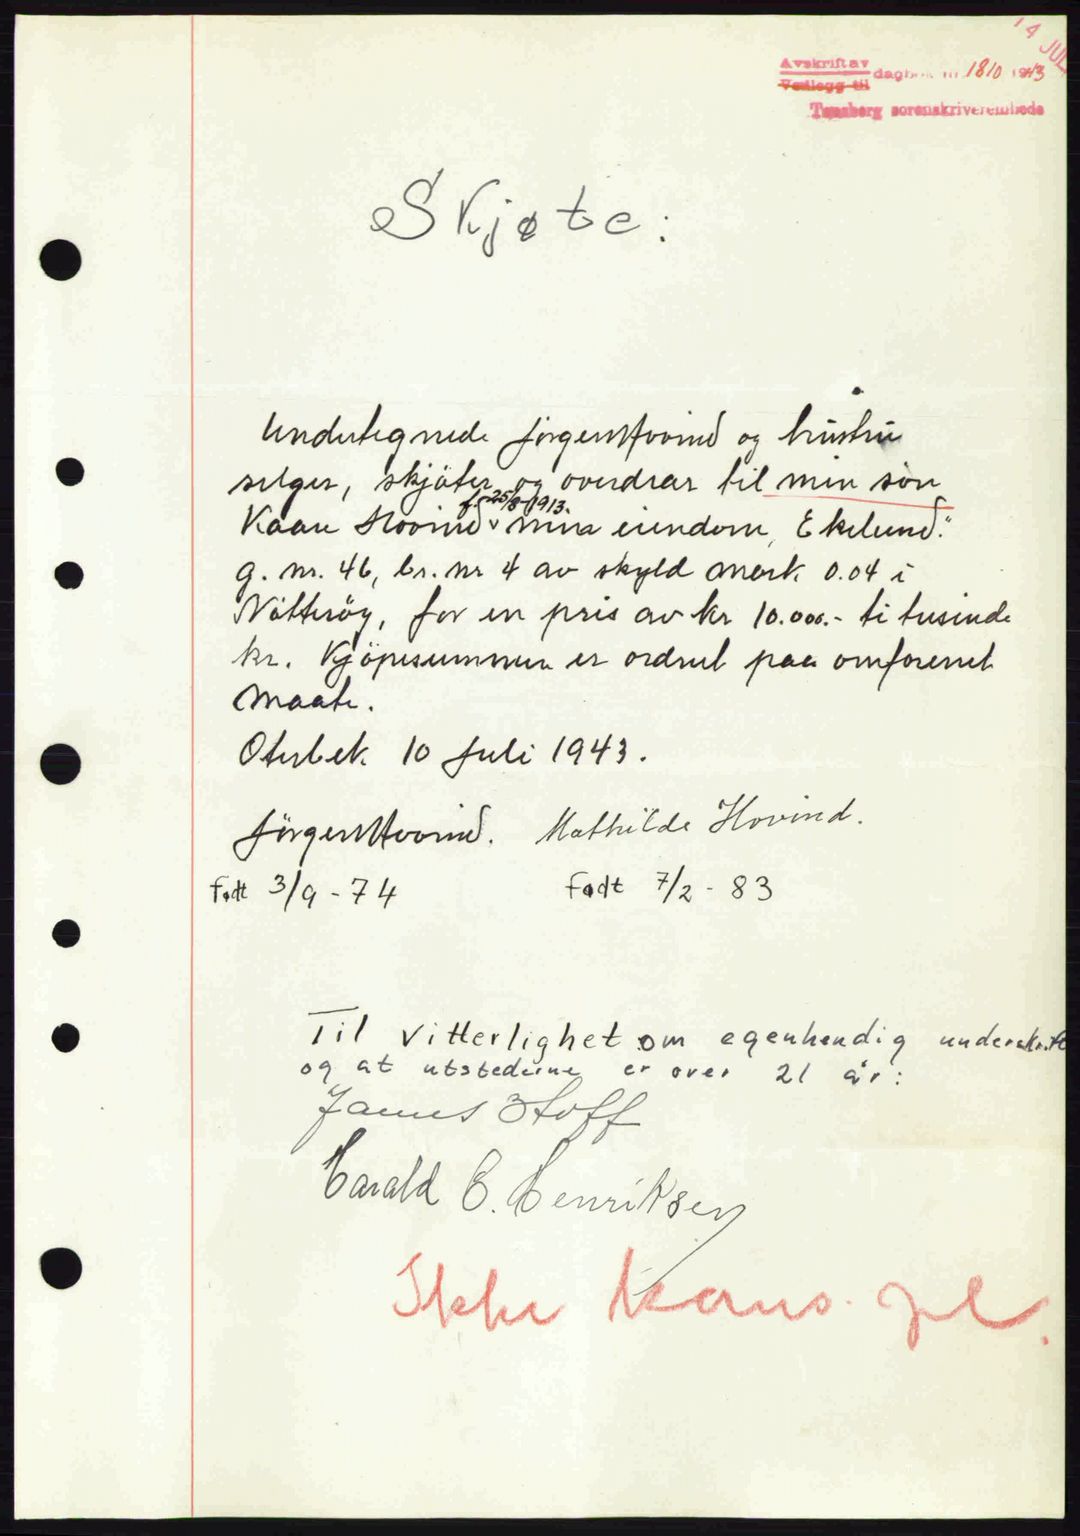 14 JUL
Avskrift av
Vedlegg til dagbok nr 1810 1943
Tønsberg sorenskriverembede
Skjøte:
Undertegnede Jörgen Hovind og hustru
selger, skjöter og overdrar til min sön
f. 25/8-1913.
Kaare Hovind v mina eiendom, Ekelund."
g. nr. 46, br. nr 4 av skyld mark 0.04 i
Nötteröy, for en pris av kr 10.000.- ti tusinde
kr. Kjöpesummen er ordnet paa omforenet
maate.
Oterbek 10 Juli 1943.
Jörgen Hovind. Mathilde Hovind.
Født 3/9-74 Født 7/2-83
Til vitterlighet om egenhendig underskrift
og at utstederne er over 21 år:
James Hoff
Harald C. Henriksen
Ikke kons. pl.